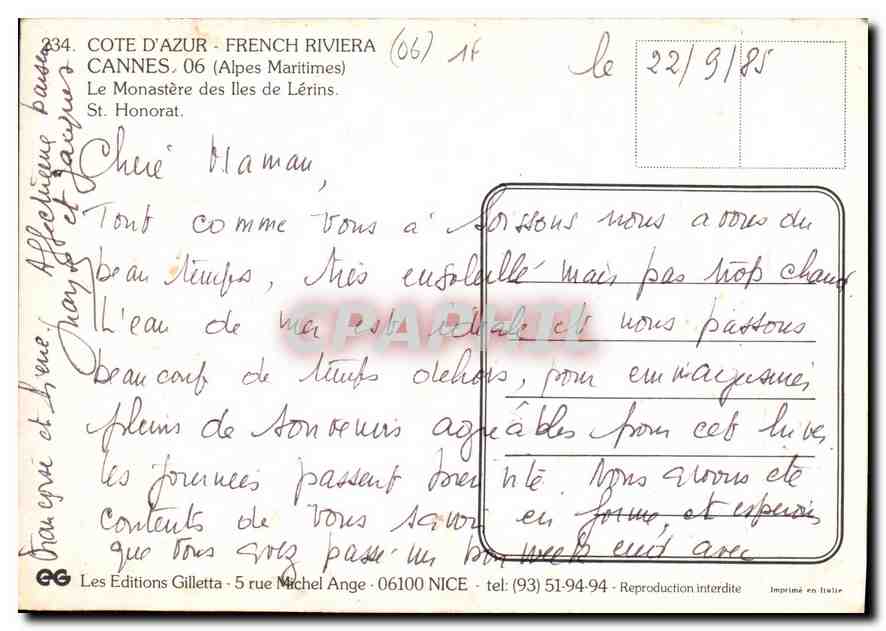 234. COTE D'AZUR - FRENCH RIVIERA
CANNES. 06 (Alpes Maritimes)
Le Monastère des Iles de Lérins.
St. Honorat.
(06) 1F
le 22/9/85
Chere Maman,
Tout comme vous à Soissons nous avons du
beau temps, très ensoleillé mais pas trop chaud
L'eau de mer est idéale et nous passons
beaucoup de temps dehors, pour emmagasiner
pleins de souvenirs agréables pour cet hiver
les journées passent bien vite. Nous avons été
contents de vous savoir en forme, et espérons
que vous avez passé un bon week end avec
Françoise et Pierre. Affectueuse pensée
et Jacques
CPAPHIL
EG Les Editions Gilletta - 5 rue Michel Ange - 06100 NICE - tel: (93) 51-94-94 - Reproduction interdite
Imprimé en Italie